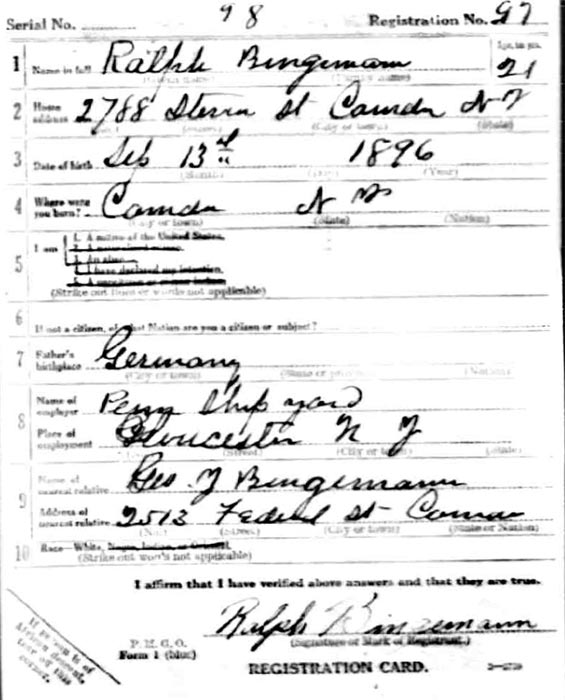 Serial No. 98 Registration No. 97
1 Name in full Ralph Bingemann Age, in yrs. 21
(Family name)
2 Home address 2788 St Camden N J
(City or town) (State)
3 Date of birth Sep 13 1896
(Month) (Day) (Year)
4 Where were you born? Camden N J
(City or town) (State) (Nation)
5 I am
1. A native of the United States.
2. A naturalized citizen.
3. An alien.
4. I have declared my intention.
5. A noncitizen or citizen Indian.
(Strike out lines or words not applicable)
6 If not a citizen, of what Nation are you a citizen or subject?
7 Father's birthplace Germany
(City or town) (State or province) (Nation)
8 Name of employer Penn Ship yard
Place of employment Gloucester N J
(Street) (City or town) (State)
9 Name of nearest relative Geo. J Bingemann
Address of nearest relative 2513 Federal St Camden
(No.) (Street) (City or town) (State or Nation)
10 Race—White, Negro, Indian, or Oriental
(Strike out words not applicable)
I affirm that I have verified above answers and that they are true.
Ralph Bingemann
(Signature or Mark of Registrant.)
P. M. G. O.
Form 1 (blue)
REGISTRATION CARD.
If person is of
African descent,
tear off this
corner.